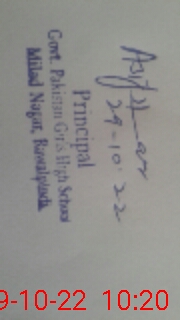 29-10-22
Principal
Govt. Pakistan Girls High School
Milad Nagar, Rawalpindi.
9-10-22 10:20